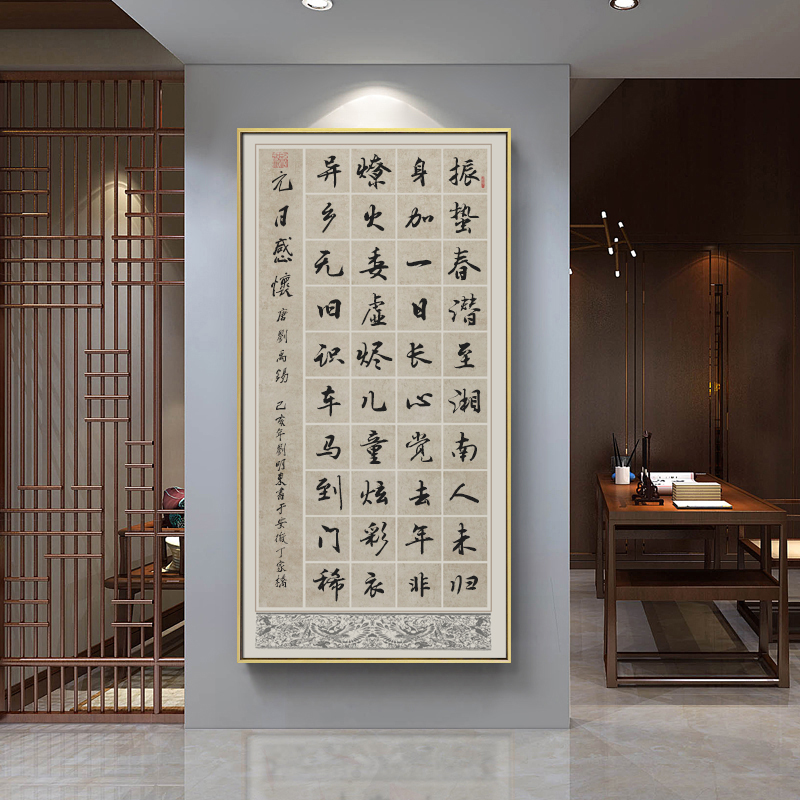 振蛰春潜至湘南人未归
身加一日长心觉去年非
燎火委虚烬儿童炫彩衣
异乡无旧识车马到门稀
元日感懷 唐劉禹锡 己亥年劉明東書于安徽丁家橋